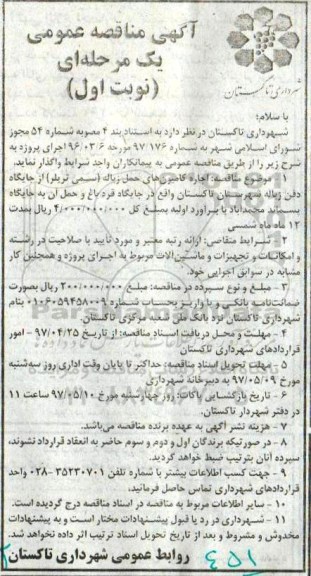 آگهی مناقصه عمومی
یک مرحله‌ای
(نوبت اول)
شهرداری تاکستان
با سلام؛
شهرداری تاکستان در نظر دارد به استناد بند ۴ مصوبه شماره ۵۴ مجوز
شورای اسلامی شهر به شماره ۹۷/۱۷۶ مورخه ۹۶/۰۳/۰۶ اجرای پروژه به
شرح زیر را از طریق مناقصه عمومی به پیمانکاران واجد شرایط واگذار نماید.
۱ – موضوع مناقصه: اجاره کامیون‌های حمل زباله (سمی تریلر) از جایگاه
دفن زباله شهرستان تاکستان واقع در جایگاه قرد باغ و حمل آن به جایگاه
پسماند محمدآباد با برآورد اولیه بمبلغ کل ۴/۰۰۰/۰۰۰/۰۰۰ ریال بمدت
۱۲ ماه ماه شمسی
۲ – شرایط متقاضی: ارائه رتبه معتبر و مورد تایید با صلاحیت در رشته
و امکانات و تجهیزات و ماشین‌آلات مربوط به اجرای پروژه و همچنین کار
مشابه در سوابق اجرایی خود.
۳ – مبلغ و نوع سپرده در مناقصه: مبلغ ۲۰۰/۰۰۰/۰۰۰ ریال بصورت
ضمانت‌نامه بانکی و یا واریز بحساب شماره ۰۱۰۶۰۵۹۴۵۸۰۰۹ بنام
شهرداری تاکستان نزد بانک ملی شعبه مرکزی تاکستان
۴ – مهلت و محل دریافت اسناد مناقصه: از تاریخ ۹۷/۰۴/۲۵ – امور
قراردادهای شهرداری تاکستان
۵ – مهلت تحویل اسناد مناقصه: حداکثر تا پایان وقت اداری روز سه‌شنبه
مورخ ۹۷/۰۵/۰۹ به دبیرخانه شهرداری
۶ – تاریخ بازگشایی پاکات: روز چهارشنبه مورخ ۹۷/۰۵/۱۰ ساعت ۱۱
در دفتر شهردار تاکستان.
۷ – هزینه نشر آگهی به عهده برنده مناقصه می‌باشد.
۸ – در صورتیکه برندگان اول و دوم و سوم حاضر به انعقاد قرارداد نشوند،
سپرده آنان بترتیب ضبط خواهد گردید.
۹ – جهت کسب اطلاعات بیشتر با شماره تلفن ۳۵۲۳۰۷۰۱-۰۲۸ واحد
قراردادهای شهرداری تماس حاصل فرمائید.
۱۰ – سایر اطلاعات مربوط به مناقصه در اسناد مناقصه درج گردیده است.
۱۱ – شهرداری در رد یا قبول پیشنهادات مختار است و به پیشنهادات
مخدوش و مشروط و بعد از تاریخ تحویل اسناد ترتیب اثر داده نخواهد شد.
روابط عمومی شهرداری تاکستان
۴۵۱